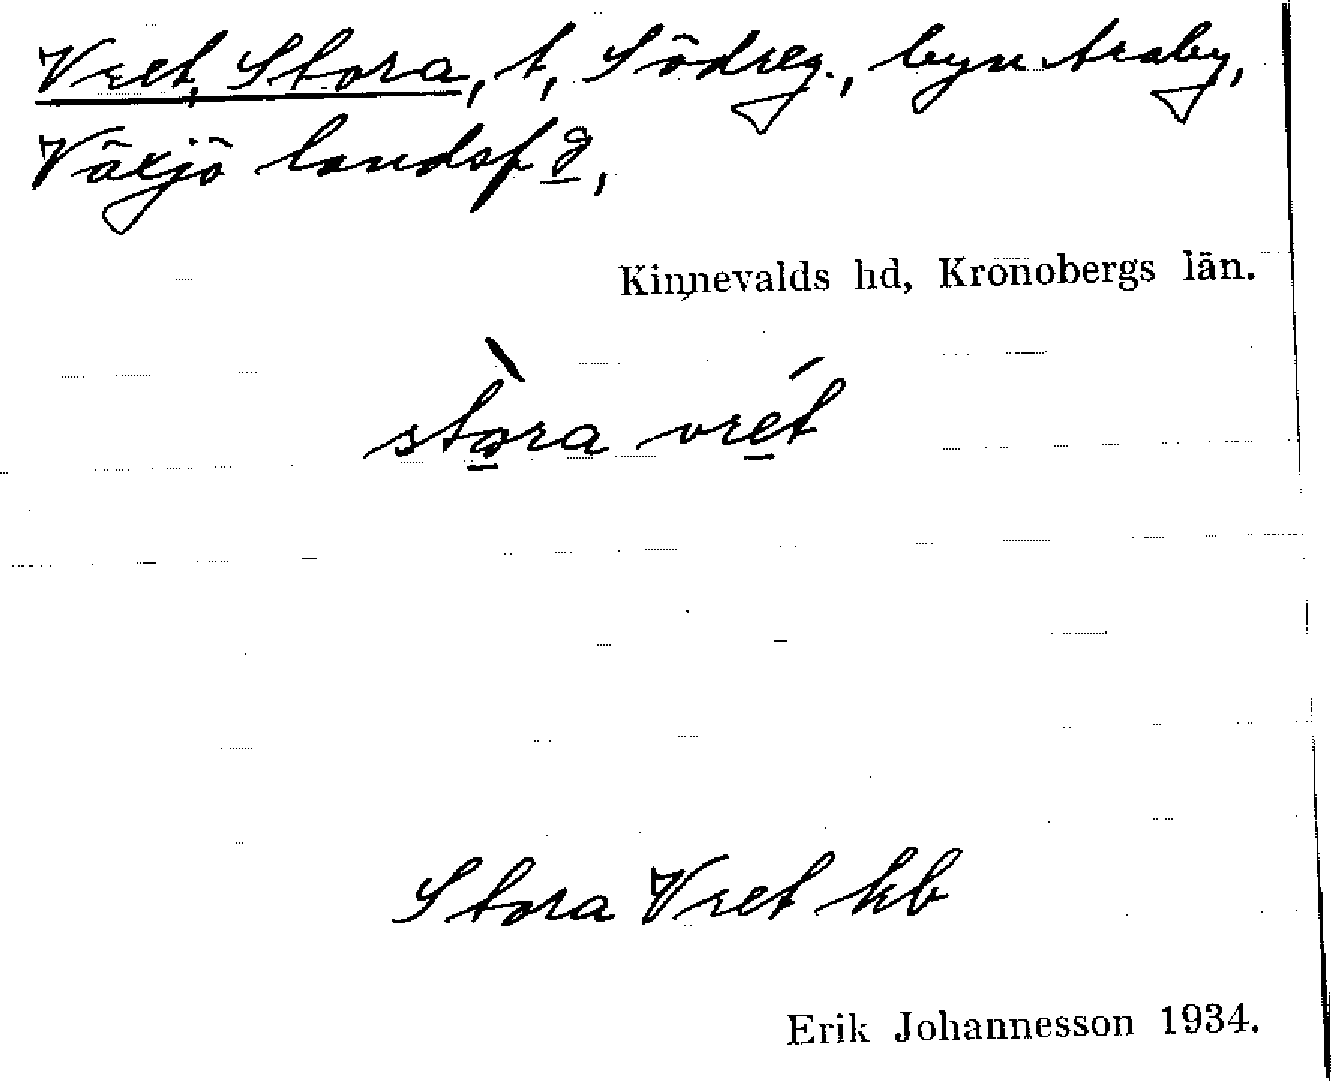 Vret, Stora, t, Södreg., byn Araby,
Växjö landsf
Kinnevalds hd, Kronobergs län.
stora vret
Stora Vret kb
Erik Johannesson 1934.